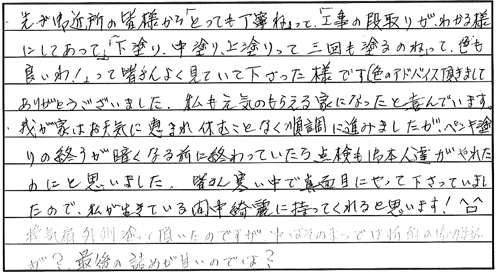 ・先ずご近所の皆様から「とっても丁寧ねェって、「工事の段取りがわかる様
にしてあって」「下塗り、中塗り、上塗りって三回も塗るのねェって、色も
良いわ！」って皆さんよく見ていて下さった様です(色のアドバイス頂きまして
ありがとうございました。私も元気のもらえる家になったと喜んでいます。
・我が家はお天気に恵まれ休むことなく順調に進みましたが、ペンキ塗
りの終りが暗くなる前に終わっていたら点検もご本人達がやれた
のにと思いました。皆さん寒い中で真面目にやって下さっていまし
たので、私が生きている間中綺麗に持ってくれると思います！^^
が？最後の詰めが甘いのでは？